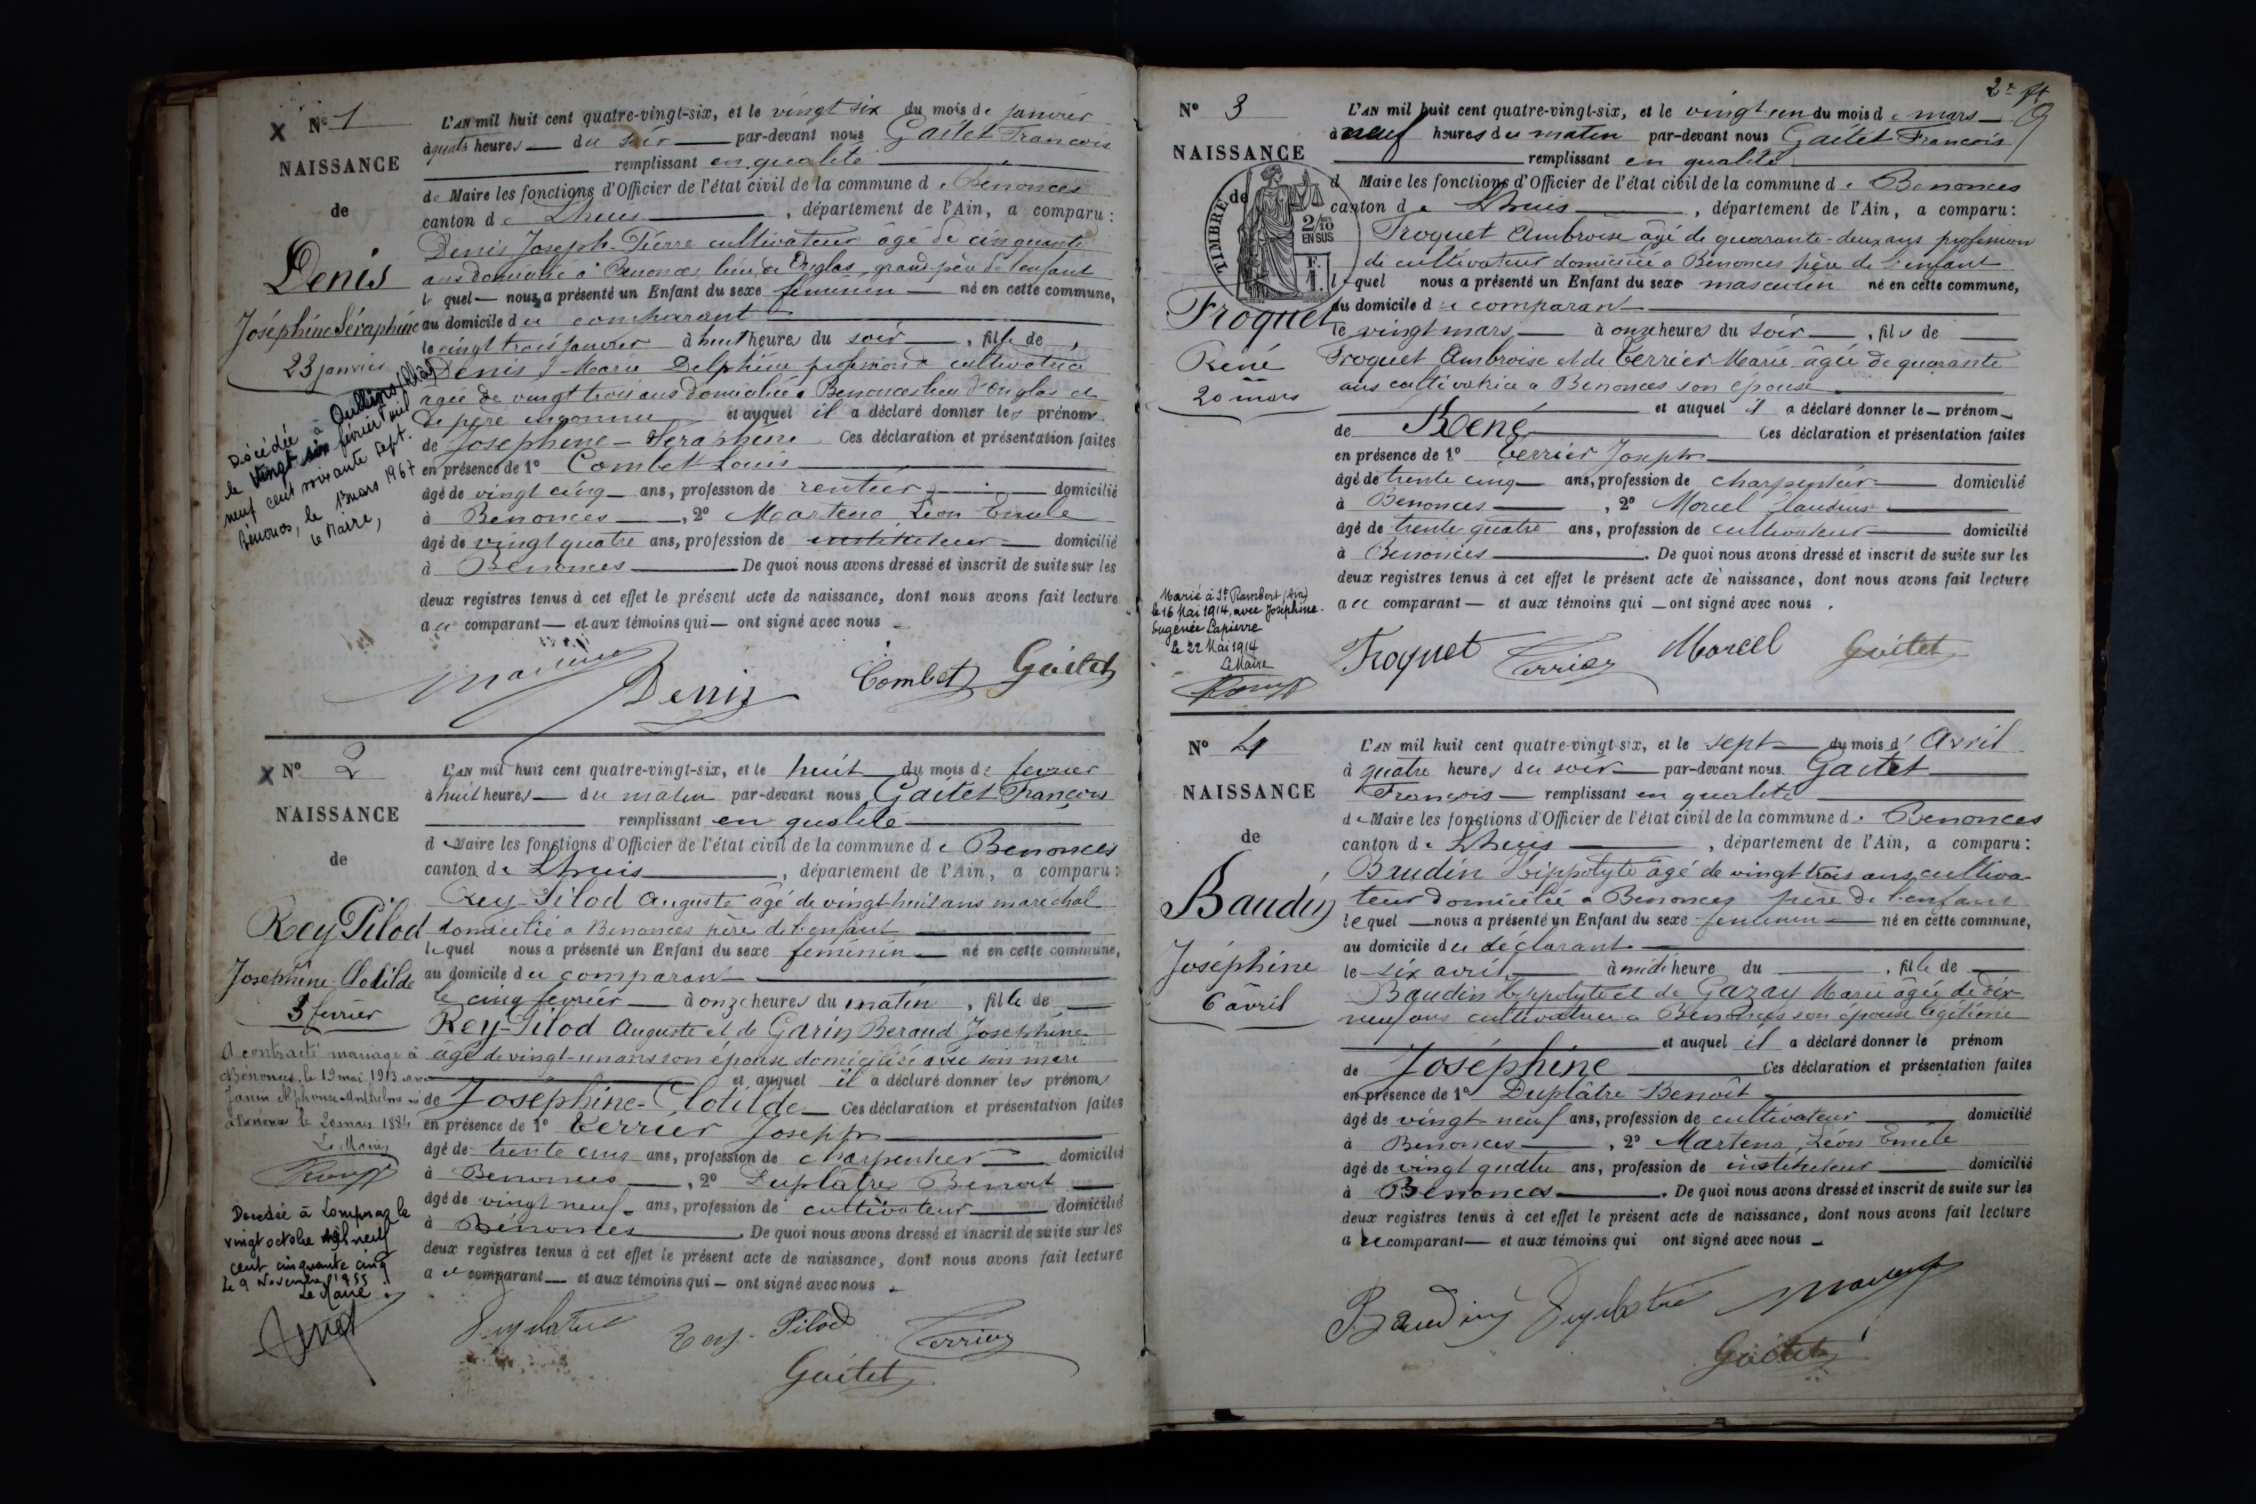 N° 1
NAISSANCE
de
Denis
Joséphine Séraphine
23 janvier
Décédée à Oullins (Rhône)
le vingt six février mil
neuf cent soixante sept.
Bénonces, le 1 mars 1967
Le Maire,
L'AN mil huit cent quatre-vingt-six, et le vingt six du mois de janvier
à quatre heures du soir par-devant nous Gaitet François
remplissant en qualité
de Maire les fonctions d'Officier de l'état civil de la commune de Benonces
canton de Lhuis, département de l'Ain, a comparu:
Denis Joseph-Pierre cultivateur âgé de cinquante
ans domicilié à Benonces lieu de Onglas, grand-père de l'enfant
lequel nous a présenté un Enfant du sexe féminin né en cette commune,
au domicile du comparant
le vingt trois janvier à huit heures du soir, fille de
Denis Marie Delphine profession de cultivatrice
âgée de vingt trois ans domiciliée à Benonces lieu d'Onglas et
de père inconnu et auquel il a déclaré donner les prénoms
de Joséphine-Séraphine Ces déclaration et présentation faites
en présence de 1° Combet Louis
âgé de vingt cinq ans, profession de rentier domicilié
à Benonces, 2° Martena Léon Emile
âgé de vingt quatre ans, profession de instituteur domicilié
à Benonces De quoi nous avons dressé et inscrit de suite sur les
deux registres tenus à cet effet le présent acte de naissance, dont nous avons fait lecture
au comparant et aux témoins qui ont signé avec nous
Denis Combet Gaitet
N° 2
NAISSANCE
de
Rey Pilod
Joséphine Clotilde
5 février
A contracté mariage à
Bénonces, le 19 mai 1913 avec
Janin Alphonse-Anthelme né
à Bénonces le 20 mars 1884
Le Maire
Décédée à Lompnaz le
vingt octobre mil neuf
cent cinquante cinq
Le 9 Novembre 1955
Le Maire
L'AN mil huit cent quatre-vingt-six, et le huit du mois de février
à huit heures du matin par-devant nous Gaitet François
remplissant en qualité
de Maire les fonctions d'Officier de l'état civil de la commune de Benonces
canton de Lhuis, département de l'Ain, a comparu:
Rey-Pilod Auguste âgé de vingt-huit ans maréchal
domicilié à Benonces père de l'enfant
lequel nous a présenté un Enfant du sexe féminin né en cette commune,
au domicile du comparant
le cinq février à onze heures du matin, fille de
Rey-Pilod Auguste et de Garin Beraud Joséphine
âgé de vingt-un ans son épouse domiciliée avec son mari
et auquel il a déclaré donner les prénoms
de Joséphine-Clotilde Ces déclaration et présentation faites
en présence de 1° Terrier Joseph
âgé de trente cinq ans, profession de charpentier domicilié
à Benonces, 2° Duplâtre Benoit
âgé de vingt neuf ans, profession de cultivateur domicilié
à Bénonces De quoi nous avons dressé et inscrit de suite sur les
deux registres tenus à cet effet le présent acte de naissance, dont nous avons fait lecture
au comparant et aux témoins qui ont signé avec nous
Duplatre Rey-Pilod Terrier
Gaitet
2e ft
N° 3
NAISSANCE
de
TIMBRE
2/10 EN SUS
F. 1.
Froquet
René
20 mars
Marié à St Rambert (Ain)
le 16 Mai 1914, avec Joséphine
Eugénie Lapierre
Le 22 Mai 1914
Le Maire
L'AN mil huit cent quatre-vingt-six, et le vingt un du mois de mars
à neuf heures du matin par-devant nous Gaitet François
remplissant en qualité
d Maire les fonctions d'Officier de l'état civil de la commune de Benonces
canton de Lhuis, département de l'Ain, a comparu:
Froquet Ambroise âgé de quarante-deux ans profession
de cultivateur domicilié à Benonces père de l'enfant
lequel nous a présenté un Enfant du sexe masculin né en cette commune,
au domicile du comparant
le vingt mars à onze heures du soir, fils de
Froquet Ambroise et de Terrier Marie âgée de quarante
ans cultivatrice à Benonces son épouse
et auquel il a déclaré donner le prénom
de René Ces déclaration et présentation faites
en présence de 1° Terrier Joseph
âgé de trente cinq ans, profession de charpentier domicilié
à Benonces, 2° Marcel Claudius
âgé de trente quatre ans, profession de cultivateur domicilié
à Benonces. De quoi nous avons dressé et inscrit de suite sur les
deux registres tenus à cet effet le présent acte de naissance, dont nous avons fait lecture
au comparant et aux témoins qui ont signé avec nous.
Froquet Terrier Marcel Gaitet
N° 4
NAISSANCE
de
Baudin
Joséphine
6 avril
L'AN mil huit cent quatre-vingt-six, et le sept du mois d'Avril
à quatre heures du soir par-devant nous Gaitet
François remplissant en qualité
de Maire les fonctions d'Officier de l'état civil de la commune de Benonces
canton de Lhuis, département de l'Ain, a comparu:
Baudin Hippolyte âgé de vingt trois ans cultiva-
teur domicilié à Benonces père de l'enfant
lequel nous a présenté un Enfant du sexe féminin né en cette commune,
au domicile du déclarant
le six avril à midi heure du, fille de
Baudin Hippolyte et de Gazay Marie âgée de dix-
neuf ans cultivatrice à Benonces son épouse légitime
et auquel il a déclaré donner le prénom
de Joséphine Ces déclaration et présentation faites
en présence de 1° Duplâtre Benoît
âgé de vingt neuf ans, profession de cultivateur domicilié
à Benonces, 2° Martena Léon Emile
âgé de vingt quatre ans, profession de instituteur domicilié
à Benonces. De quoi nous avons dressé et inscrit de suite sur les
deux registres tenus à cet effet le présent acte de naissance, dont nous avons fait lecture
au comparant et aux témoins qui ont signé avec nous
Baudin Duplatre
Gaitet